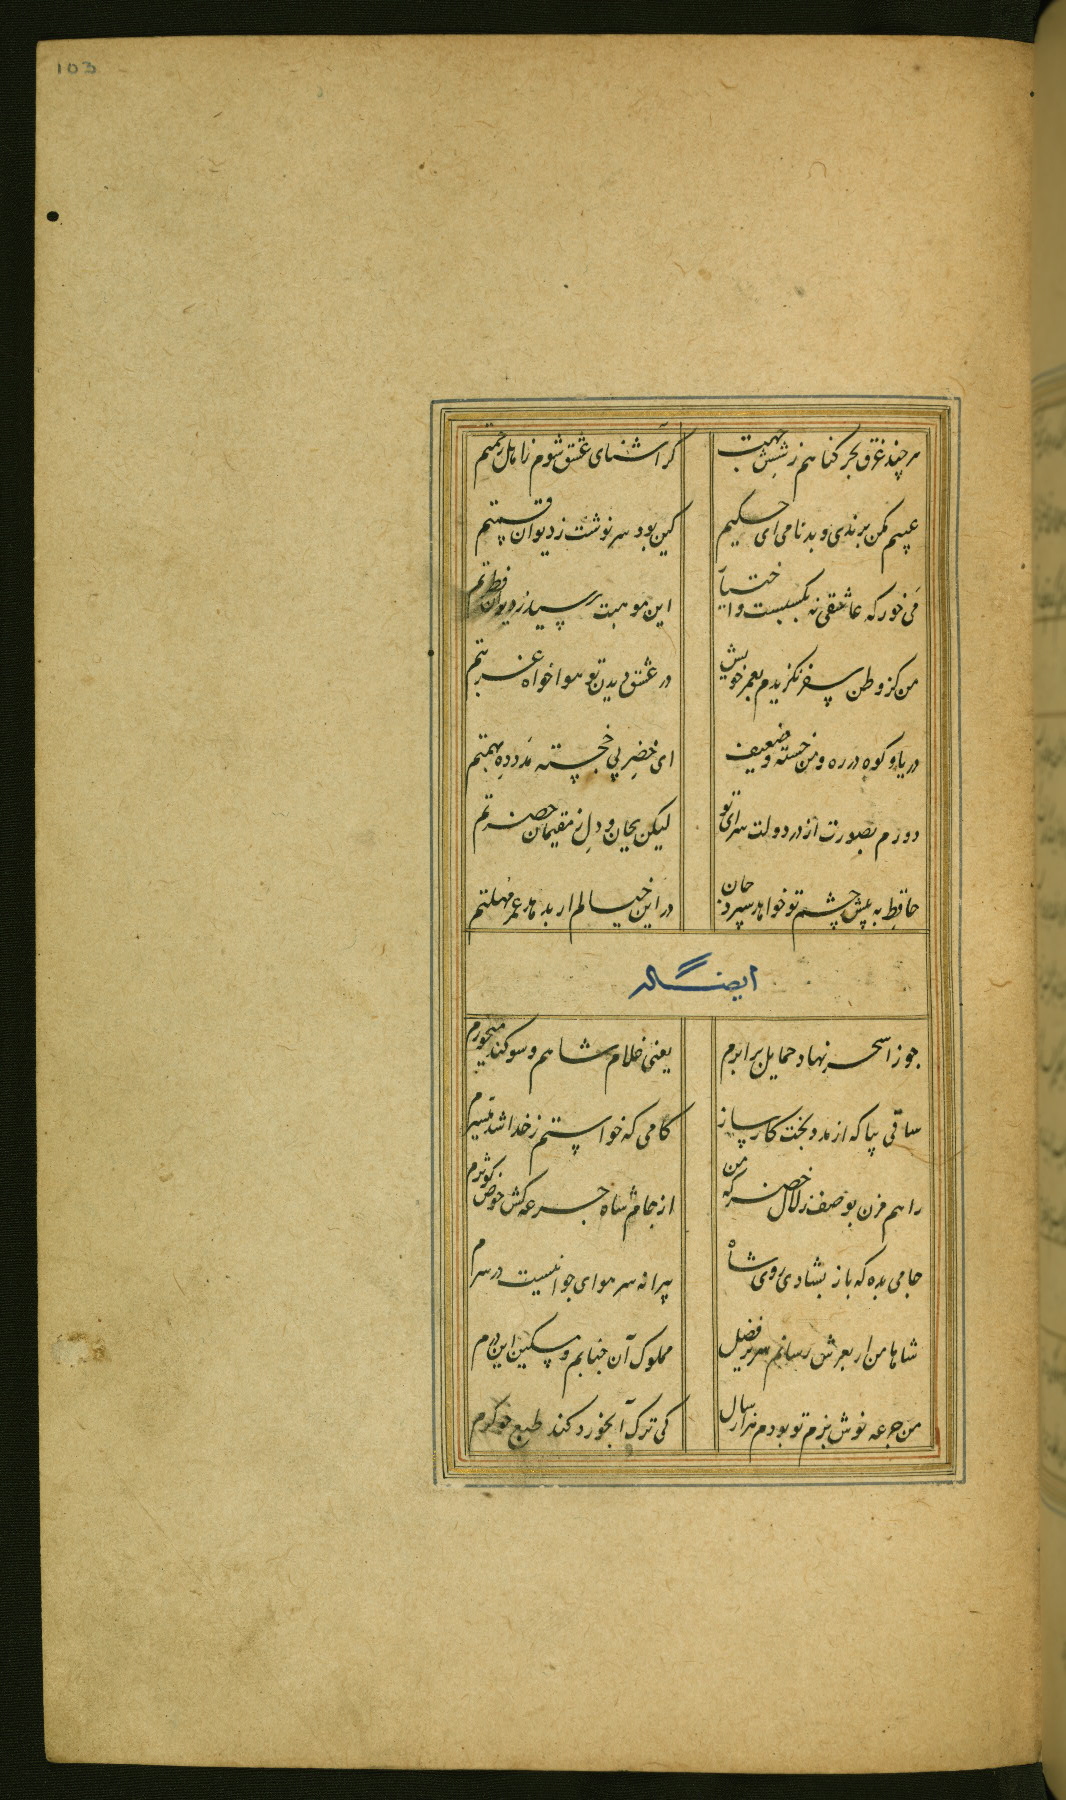 103
هرچند غرق بحر گناهم ز شش جهت گر آشنای عشق شوم ز اهل رحمتم
عیبم مکن برندی و بدنامی ای حکیم کین بود سرنوشت ز دیوان قسمتم
می خور که عاشقی نه بکسبست و اختیار این موهبت رسید ز دیوان فطرتم
من کز وطن سفر نگزیدم بعمر خویش در عشق دیدن تو هوا خواه غربتم
دریا و کوه در ره و من خسته و ضعیف ای خضر پی خجسته مدد ده بهمتم
دورم بصورت از در دولت سرای تو لیکن بجان و دل ز مقیمان حضرتم
حافظ به پیش چشم تو خواهد سپرد جان در این خیالم ار بدهد عمر مهلتم
ایضا له
جوزا سحر نهاد حمایل برابرم یعنی غلام شاهم و سوگند میخورم
ساقی بیا که از مدد بخت کارساز کامی که خواستم ز خدا شد میسرم
راهم مزن بوصف زلال خضر که من از جام شاه جرعه کش حوض کوثرم
جامی بده که باز بشادی روی شاه پیرانه سر هوای جوانیست در سرم
شاها من ار بعرش رسانم سریر فضل مملوک آن جنابم و مسکین این درم
من جرعه نوش بزم تو بودم هزار سال کی ترک آبخورد کند طبع خوگرم